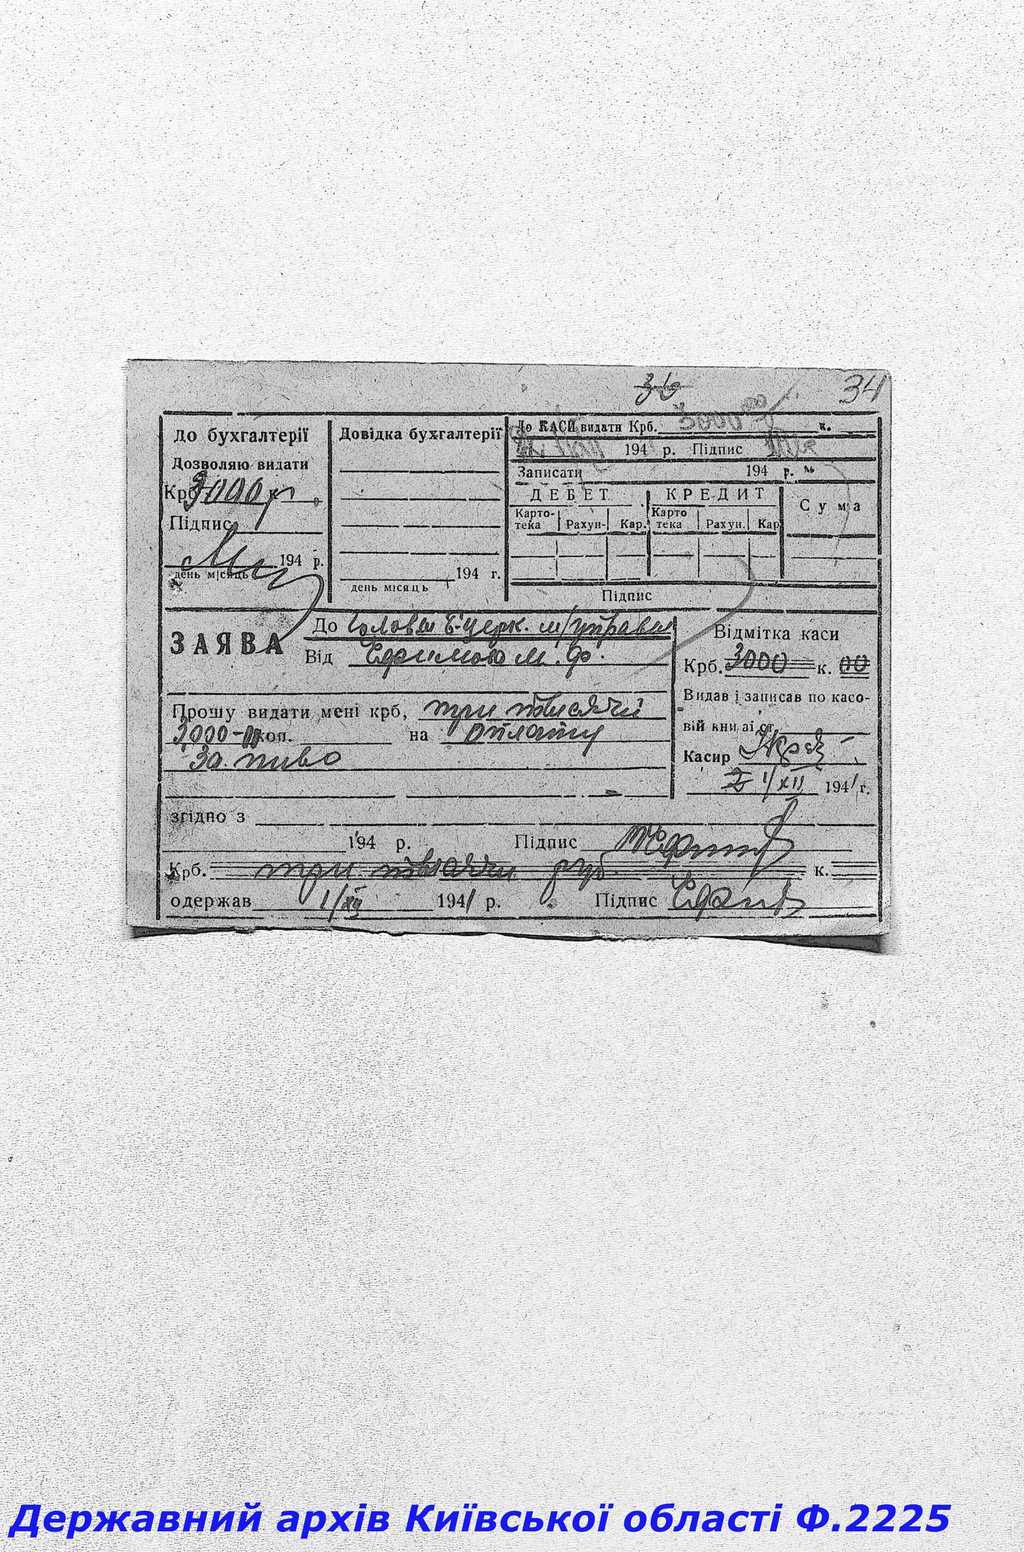 36
34
До бухгалтерії
Дозволяю видати
Крб. 3000 р
Підпис
194 р.
день місяць
Довідка бухгалтерії
194 г.
день місяць
До КАСИ видати Крб. 3000 00 к.
194 р. Підпис
Записати 194 р.
ДЕБЕТ КРЕДИТ Сума
Карто-тека Рахун. Кар. Карто тека Рахун. Кар
Підпис
ЗАЯВА
До Голови Б-церк. м/управи
Від Єфимова М. Ф.
Прошу видати мені крб, три тисячи
3000-00 коп. на оплату
За пиво
Відмітка каси
Крб. 3000 к. 00
Видав і записав по касо-
вій книзі ст.
Касир
1/XII 1941 г.
згідно з
194 р. Підпис
Крб. три тысячи руб к.
одержав 1/XII 1941 р. Підпис
Державний архів Київської області Ф.2225